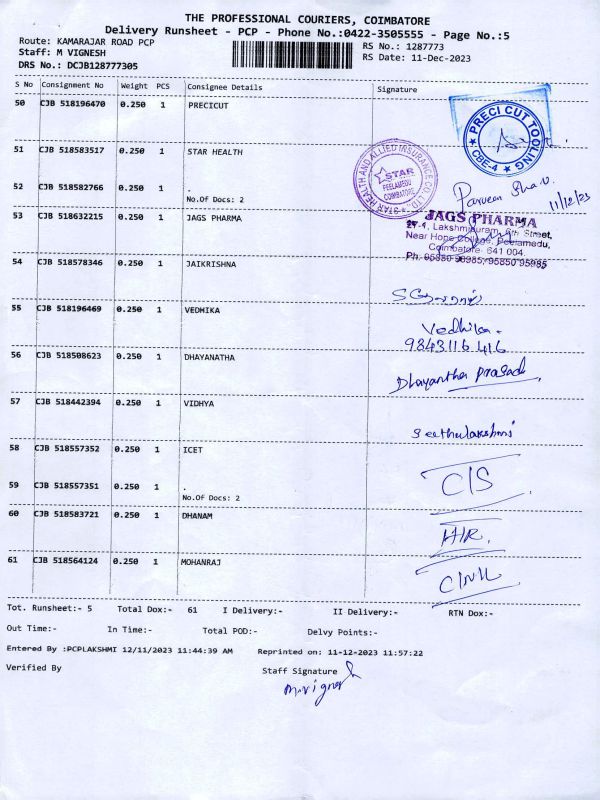 THE PROFESSIONAL COURIERS, COIMBATORE
Delivery Runsheet - PCP - Phone No.:0422-3505555 - Page No.:5
Route: KAMARAJAR ROAD PCP
RS No.: 1287773
Staff: M VIGNESH
RS Date: 11-Dec-2023
DRS No.: DCJB128777305
S No Consignment No Weight PCS Consignee Details Signature
50 CJB 518196470 0.250 1 PRECICUT
PRECI CUT TOOLING
CBE-4
51 CJB 518583517 0.250 1 STAR HEALTH
STAR HEALTH AND ALLIED INSURANCE CO. LTD.
STAR
PEELAMEDU
COIMBATORE
52 CJB 518582766 0.250 1 .
No.Of Docs: 2
Parveen
11/12/23
53 CJB 518632215 0.250 1 JAGS PHARMA
JAGS PHARMA
Lakshmipuram, 6th Street,
Near Hope College, Peelamedu,
Coimbatore. 641 004.
54 CJB 518578346 0.250 1 JAIKRISHNA
55 CJB 518196469 0.250 1 VEDHIKA
Vedhika.
9843116 416
56 CJB 518508623 0.250 1 DHAYANATHA
Dhayantha Prasad
57 CJB 518442394 0.250 1 VIDHYA
Seethulakshmi
58 CJB 518557352 0.250 1 ICET
59 CJB 518557351 0.250 1 .
No.Of Docs: 2
C/S
60 CJB 518583721 0.250 1 DHANAM
61 CJB 518564124 0.250 1 MOHANRAJ
Tot. Runsheet:- 5 Total Dox:- 61 I Delivery:- II Delivery:- RTN Dox:-
Out Time:- In Time:- Total POD:- Delvy Points:-
Entered By :PCPLAKSHMI 12/11/2023 11:44:39 AM Reprinted on: 11-12-2023 11:57:22
Verified By Staff Signature
M.Vignesh